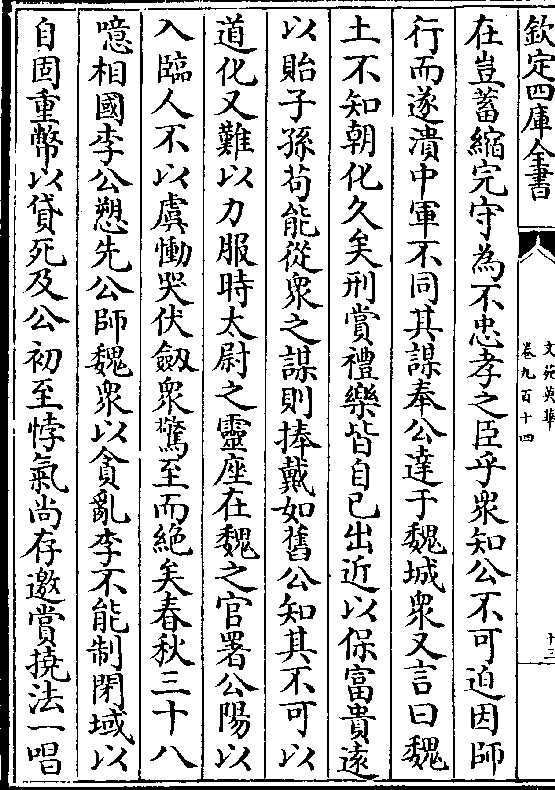 欽定四庫全書
文苑英華
卷九百十四
十三
在豈蓄縮完守為不忠孝之臣乎衆知公不可迫因師
行而遂潰中軍不同其謀奉公達于魏城衆又言曰魏
土不知朝化久矣刑賞禮樂皆自已出近以保富貴遠
以貽子孫苟能從衆之謀則捧戴如舊公知其不可以
道化又難以力服時太尉之靈座在魏之官署公陽以
入臨人不以虞慟哭伏劔衆驚至而絶矣春秋三十八
噫相國李公愬先公師魏衆以貪亂李不能制閉域以
自固重幣以貸死及公初至悖氣尚存邀賞撓法一唱